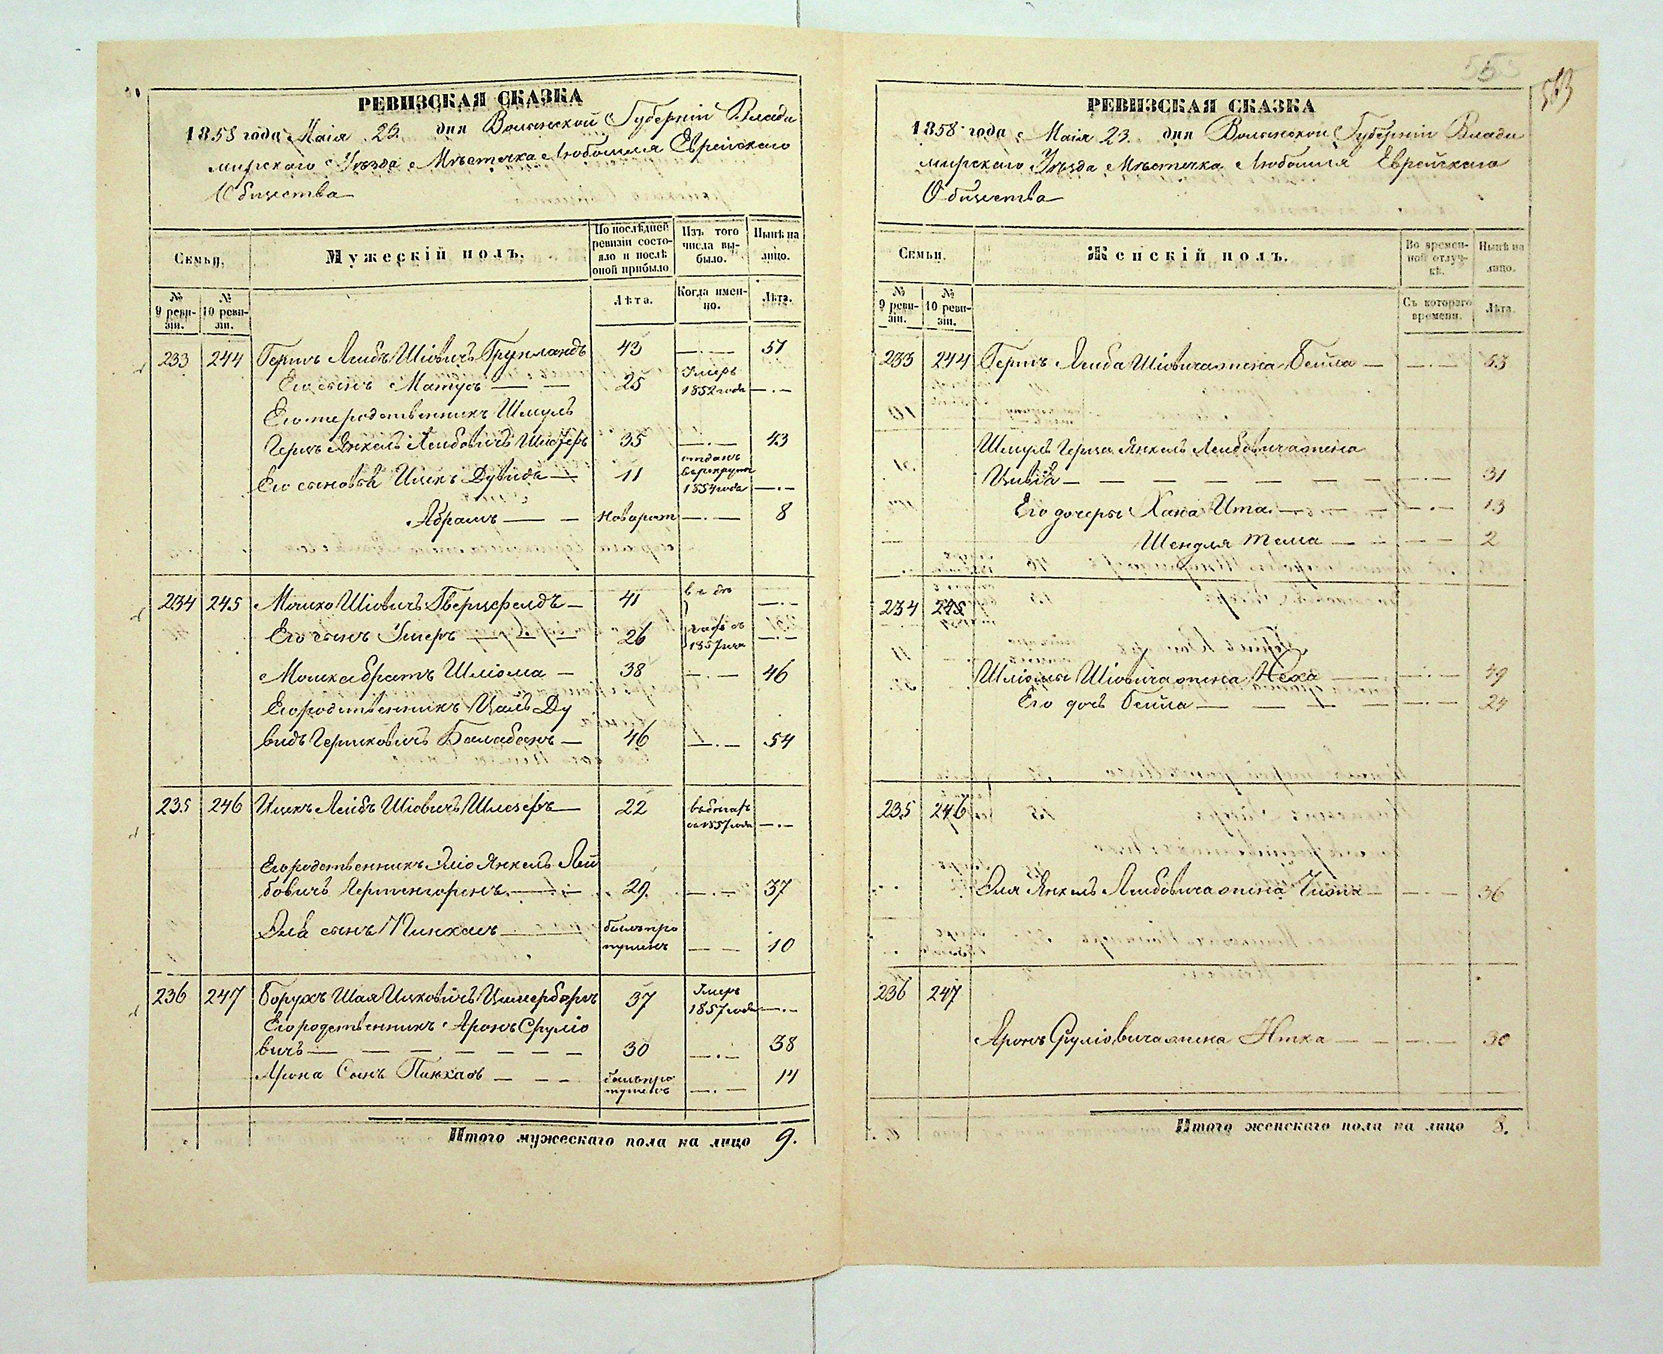 РЕВИЗСКАЯ СКАЗКА
1858 года Маія 23 дня Волынской Губерніи Влади
мирскаго Уѣзда Мѣстечка Любомля Еврейскаго
Общества
Семьи.
Мужескій полъ.
По послѣдней ревизіи состояло и послѣ оной прибыло
Изъ того числа выбыло.
Нынѣ на лицо.
№ 9 ревизіи.
№ 10 ревизіи.
Лѣта.
Когда именно.
Лѣта.
233 244 Гершъ Лейбъ Шіовичъ 43 — . — 51
Его сынъ Матусъ — — 25 Умеръ 1852 года — . —
Его родственникъ Шмуль
Герцъ Янкель Лейбовичъ 35 — . — 43
Его сыновья Ицкъ Дувидъ — 11 отданъ въ рекруты 1854 года — . —
Абрамъ — — новорож — . — 8
234 245 Мошко Шіовичъ — 41 — . —
Его сынъ — — 26 1857 года — . —
Мошка братъ Шліома — 38 — . — 46
Его родственникъ Цаль Ду
видъ Гершковичъ Балабанъ — 46 — . — 54
235 246 Ицкъ Лейбъ Шіовичъ — 22 1857 года — . —
Его родственникъ Эліо Янкель Лей
бовичъ — 29 — . — 37
Эля сынъ Пинхасъ — былъ про
пущенъ — — 10
236 247 Борухъ Шая Ицковичъ 37 Умеръ 1857 года — . —
Его родственникъ Аронъ Сруліо
вичъ — — — — — — 30 — . — 38
Арона Сынъ Пинхасъ — — — былъ про
пущенъ — . — 14
Итого мужескаго пола на лицо 9.
РЕВИЗСКАЯ СКАЗКА
1858 года Маія 23 дня Волынской Губерніи Влади
мирскаго Уѣзда Мѣстечка Любомля Еврейскаго
Общества
Семьи.
Женскій полъ.
Во временной отлучкѣ.
Нынѣ на лицо.
№ 9 ревизіи.
№ 10 ревизіи.
Съ котораго времени.
Лѣта.
233 244 Гершъ Лейба Шіовича жена Бейла — — . — 53
Шмуль Герца Янкель Лейбовича жена
Цивіа — — — — — — — . — 31
Его дочери Хана Ита — — . — 13
Шендля — — — — 2
234 245
Шліомы Шіовича жена Неха — — . — 49
Его дочь Бейла — — — — — . — 24
235 246
Эля Янкель Лейбовича жена — — . — 36
236 247
Аронъ Сруліовича жена — — — . — 30
Итого женскаго пола на лицо 8.